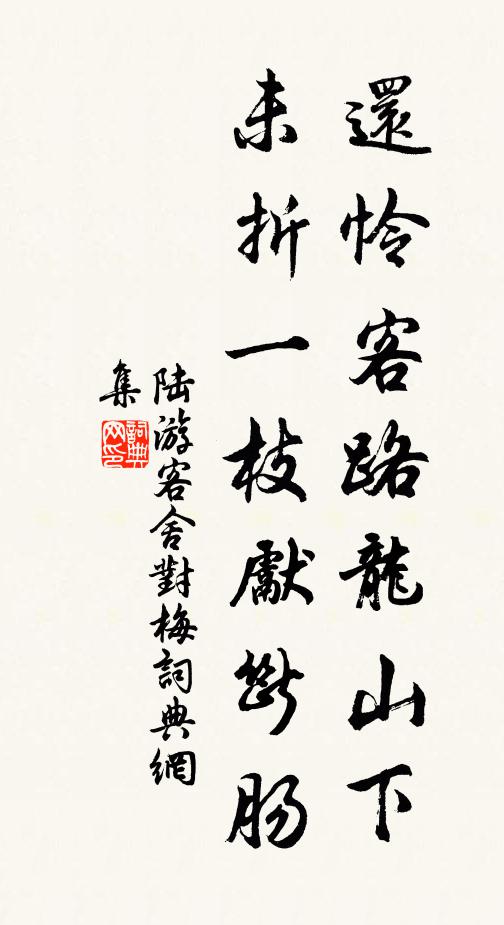 還憐客路龍山下
未折一枝獻斷肠
陆游客舍對梅詞典網
集
詞典网印